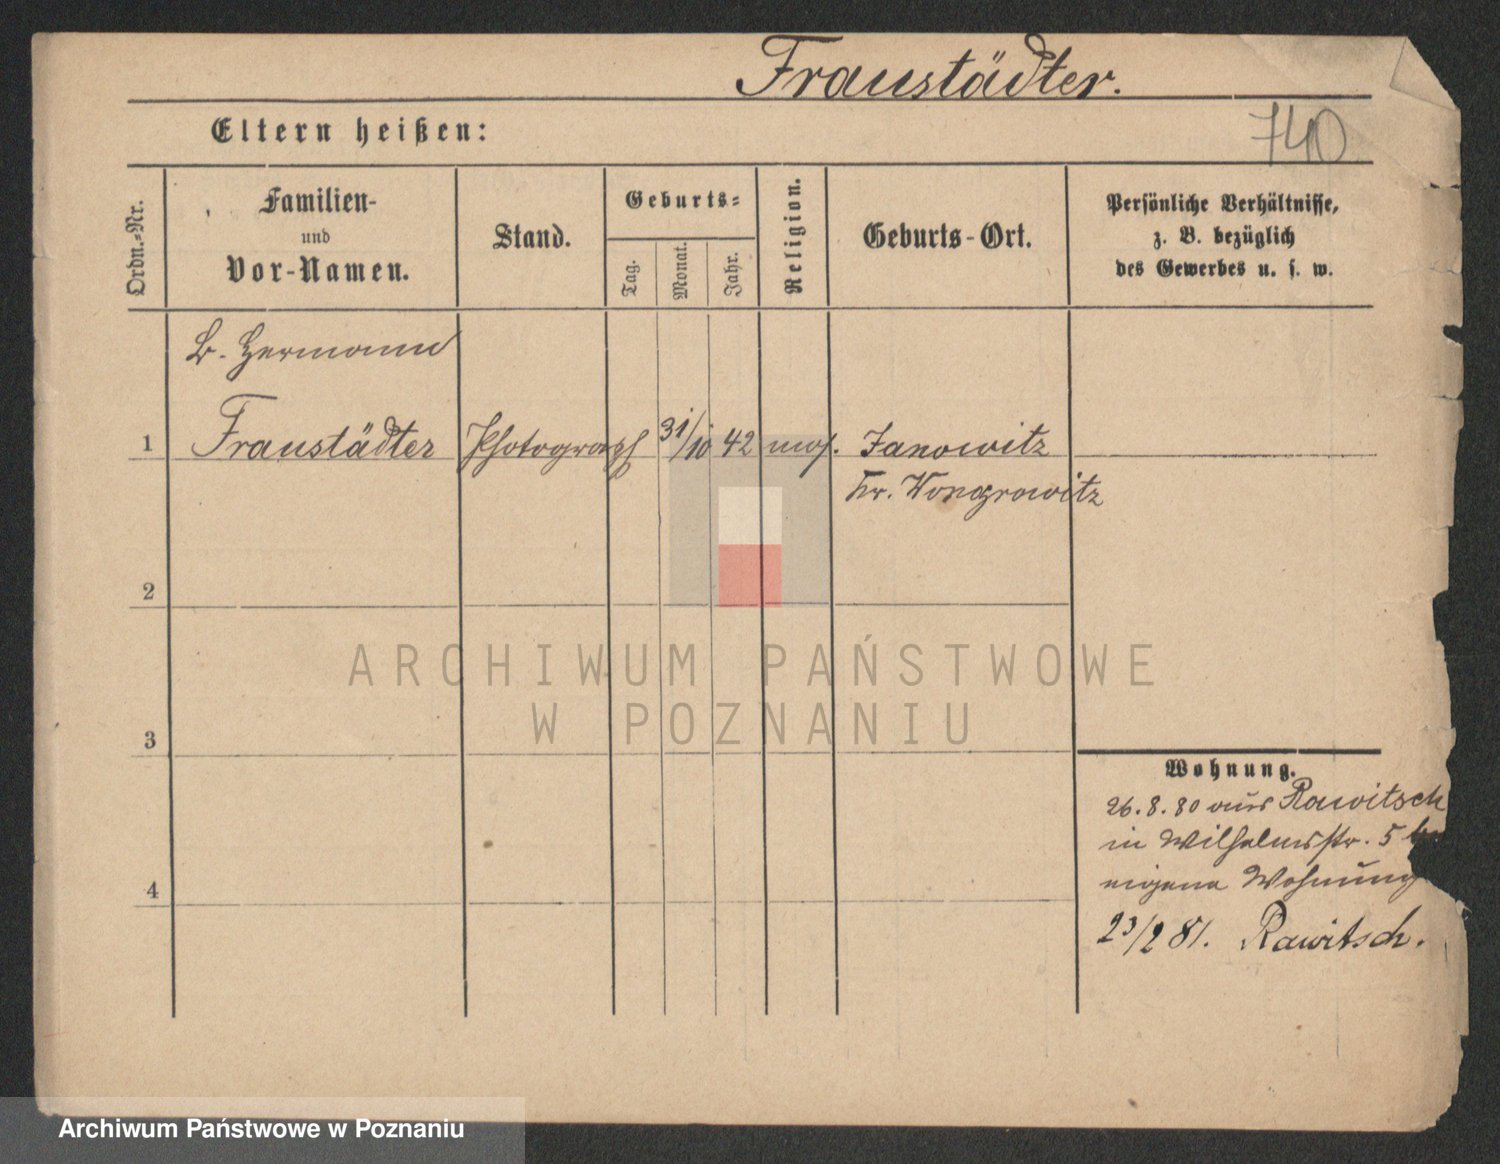 Fraustädter.
Eltern heißen:
740
Ordn.-Nr.
Familien-
und
Vor-Namen.
Stand.
Geburts-
Tag.
Monat.
Jahr.
Religion.
Geburts-Ort.
Persönliche Verhältnisse,
z. B. bezüglich
des Gewerbes u. s. w.
Hermann
1 Fraustädter Photograph 31/10 42 mos. Janowitz
Kr. Wongrowitz
2
3
4
Wohnung.
26.8.80 aus Rawitsch
in Wilhelmsstr. 5
eigene Wohnung
23/2 81. Rawitsch.
ARCHIWUM PAŃSTWOWE
W POZNANIU
Archiwum Państwowe w Poznaniu